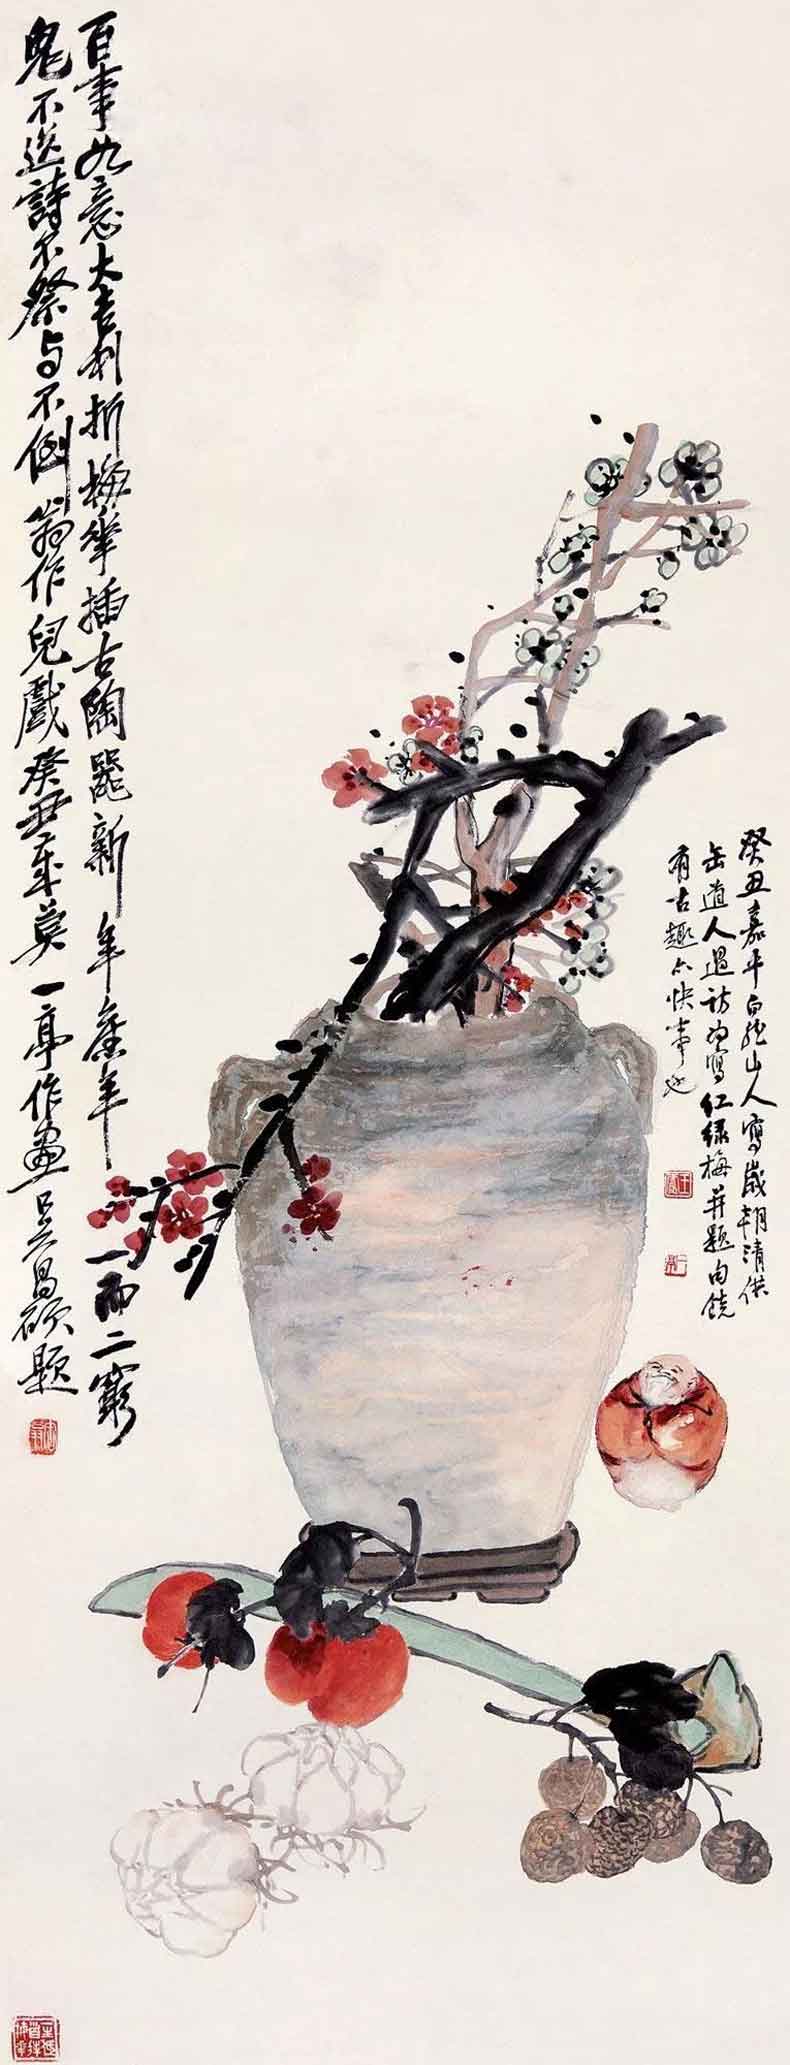 百事如意大吉利折梅華插古陶器新年舊年一而二窮
鬼不送詩不祭与不倒翁作兒戲癸丑歲莫一亭作畫吳昌碩題
癸丑嘉平白龍山人寫歲朝清供
缶道人過訪為寫紅綠梅并題句饒
有古趣亦快事也